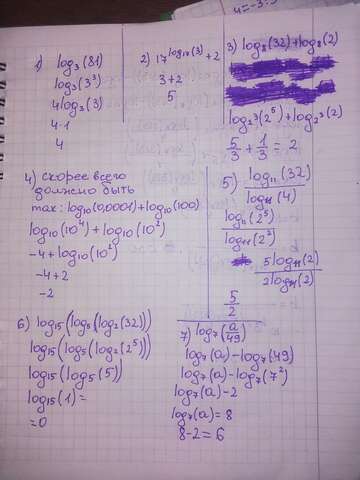 1) log₃(81)
log₃(3³)
4log₃(3)
4·1
4
2) 17^log₁₇(3) + 2
3+2
5
3) log₈(32)+log₈(2)
log₂³(2⁵)+log₂³(2)
5/3 + 1/3 = 2
4) скорее всего
должно быть
так: log₁₀(0,0001)+log₁₀(100)
log₁₀(10⁴)+log₁₀(10²)
-4+log₁₀(10²)
-4+2
-2
5) log₁₁(32)
log₁₁(4)
log₁₁(2⁵)
log₁₁(2²)
5log₁₁(2)
2log₁₁(2)
5/2
6) log₁₅(log₅(log₂(32)))
log₁₅(log₅(log₂(2⁵)))
log₁₅(log₅(5))
log₁₅(1)=
=0
7) log₇(a/49)
log₇(a)-log₇(49)
log₇(a)-log₇(7²)
log₇(a)-2
log₇(a)=8
8-2=6